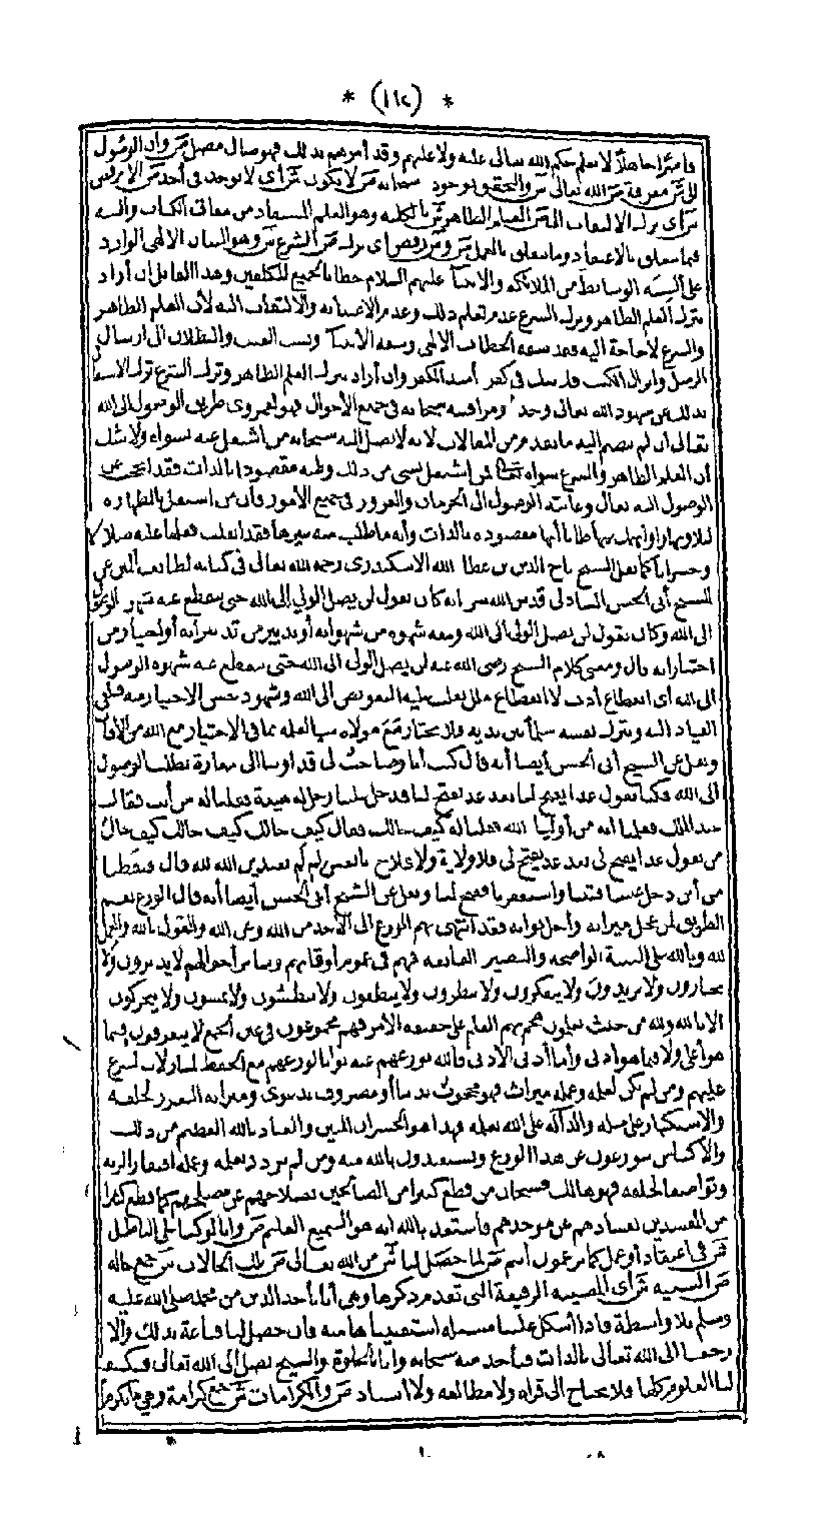 * (١١٤) *
لا يعلم حكم الله تعالى عليه ولا عليهم وقد أمرهم بذلك فهو ضال مضل ص وان الوصول
الى ش معرفة ص الله تعالى ش والتحقق بوجود سبحانه ص لا يكون ش أى لا يوجد فى أحد ص الا برفض
ش أى ترك الالتفات الى ص العلم الظاهر ش بالكلية وهو العلم المستفاد من معانى الكتاب والسنة
فيما يتعلق بالاعتقاد وما يتعلق بالعمل ش و ص رفض أى ترك ص الشرع ش وهو البيان الالهى الوارد
على ألسنة الوسائط من الملائكة والانبياء عليهم السلام خطابا لجميع المكلفين وهذا القائل ان أراد
بترك العلم الظاهر وترك الشرع عدم تعلم ذلك وعدم الاعتناء به والالتفات اليه لأن العلم الظاهر
والشرع لا حاجة اليه فقد سفه الخطاب الالهى وسفه الأنبياء ونسب العبث والبطلان الى ارسال
الرسل وانزال الكتب فلا شك فى كفره أشد الكفر وان أراد بترك العلم الظاهر وترك الشرع ترك الاشتغال
بذلك عن شهود الله تعالى وحده ومراقبته سبحانه فى جميع الأحوال فهو طريق الوصول الى الله
تعالى ان لم ينضم اليه ما تقدم من المقالات لانه لا يصل اليه سبحانه من اشتغل عنه بسواه ولا شك
أن العلم الظاهر والشرع سواه تعالى فمن اشتغل بشى من ذلك وظنه مقصودا بالذات فقد انحجب عن
الوصول اليه تعالى وغايته الوصول الى الحرمان والغرور فى جميع الأمور
وخسرانا كما نقل الشيخ تاج الدين بن عطاء الله الاسكندرى رحمه الله تعالى فى كتابه لطائف المنن عن
الشيخ أبى الحسن الشاذلى قدس الله سره انه كان يقول لن يصل الولى الى الله حتى ينقطع عنه شهوة الوصول
الى الله وكان يقول لن يصل الولى الى الله ومعه شهوة من شهواته أو تدبير من تدبيراته أو اختيار من
اختياراته قال ومعنى كلام الشيخ رضى الله عنه لن يصل الولى الى الله حتى ينقطع عنه شهوة الوصول
الى الله أى انقطاع أدب لا انقطاع ملل يغلب عليه التفويض الى الله وشهود حسن الاختيار منه فيلقى
القياد اليه ويترك نفسه سلما بين يديه فلا يختار مع مولاه شيأ لعلمه بما فى الاختيار مع الله من الآفات
ونقل عن الشيخ أبى الحسن أيضا أنه قال كنت أنا وصاحب لى قد أوينا الى مغارة نطلب الوصول
الى الله فكنا نقول غدا يفتح لنا بعد غد يفتح لنا فدخل علينا رجل له هيبة فقلنا له من أنت فقال
عبد الملك فعلمنا أنه من أولياء الله فقلنا له كيف حالك فقال كيف حالك كيف حالك كيف حال
من يقول غدا يفتح لى بعد غد يفتح لى فلا ولاية ولا فلاح يا نفس لم لم تعبدين الله لله قال فتيقظنا
من أين دخل علينا فتبنا واستغفرنا ففتح لنا ونقل عن الشيخ أبى الحسن أيضا أنه قال الورع نعم
الطريق لمن عجل ميراثه وأجل ثوابه فقد انتهى بهم الورع الى الأخذ من الله وعن الله والقول بالله والعمل
لله وبالله على البينة الواضحة والبصيرة الفائقة فهم فى عموم أوقاتهم وسائر أحوالهم لا يدبرون ولا
يختارون ولا يريدون ولا يتفكرون ولا ينظرون ولا ينطقون ولا يبطشون ولا يمشون ولا يتحركون
الا بالله ولله من حيث يعلمون هجم بهم العلم على حقيقة الأمر فهم مجموعون فى عين الجمع لا يفترقون فيما
هو أعلى ولا فيما هو أدنى وأما أدنى الأدنى فالله يورعهم عنه ثوابا لورعهم مع الحفظ لمنازلات الشرع
عليهم ومن لم يكن لعلمه وعمله ميراث فهو محجوب بدنيا أو مصروف بدعوى وميراثه التعزز لخلقه
والاستكبار على مثله والدلالة على الله بعلمه فهذا هو الخسران المبين والعياذ بالله العظيم من ذلك
والأكياس يتورعون عن هذا الورع ويستعيذون بالله منه ومن لم يزدد بعلمه وعمله افتقارا لربه
وتواضعا لخلقه فهو هالك فسبحان من قطع كثيرا من الصالحين بصلاحهم عن مصلحهم كما قطع كثيرا
من المفسدين بفسادهم عن موجدهم فاستعذ بالله انه هو السميع العليم ص وانا لو كنا على الباطل
ش فى اعتقاد أو عمل كما تزعمون أنتم ص لما حصل لنا ش من الله تعالى ص تلك الحالات ش جمع حالة
ص السنية ش أى المضيئة الرفيعة التى تقدم ذكرها وهى أنا نأخذ الدين من محمد صلى الله عليه
وسلم بلا واسطة فاذا أشكل علينا مسئلة استفتيناها منه فان حصل لنا قناعة بذلك والا
رجعنا الى الله تعالى بالذات فنأخذ منه سبحانه وانا بالخلوة والشيخ نصل الى الله تعالى فينكشف
لنا العلوم كلها فلا نحتاج الى قراءة ولا مطالعة ولا استاد ص والكرامات ش جمع كرامة وهى ما تكرم